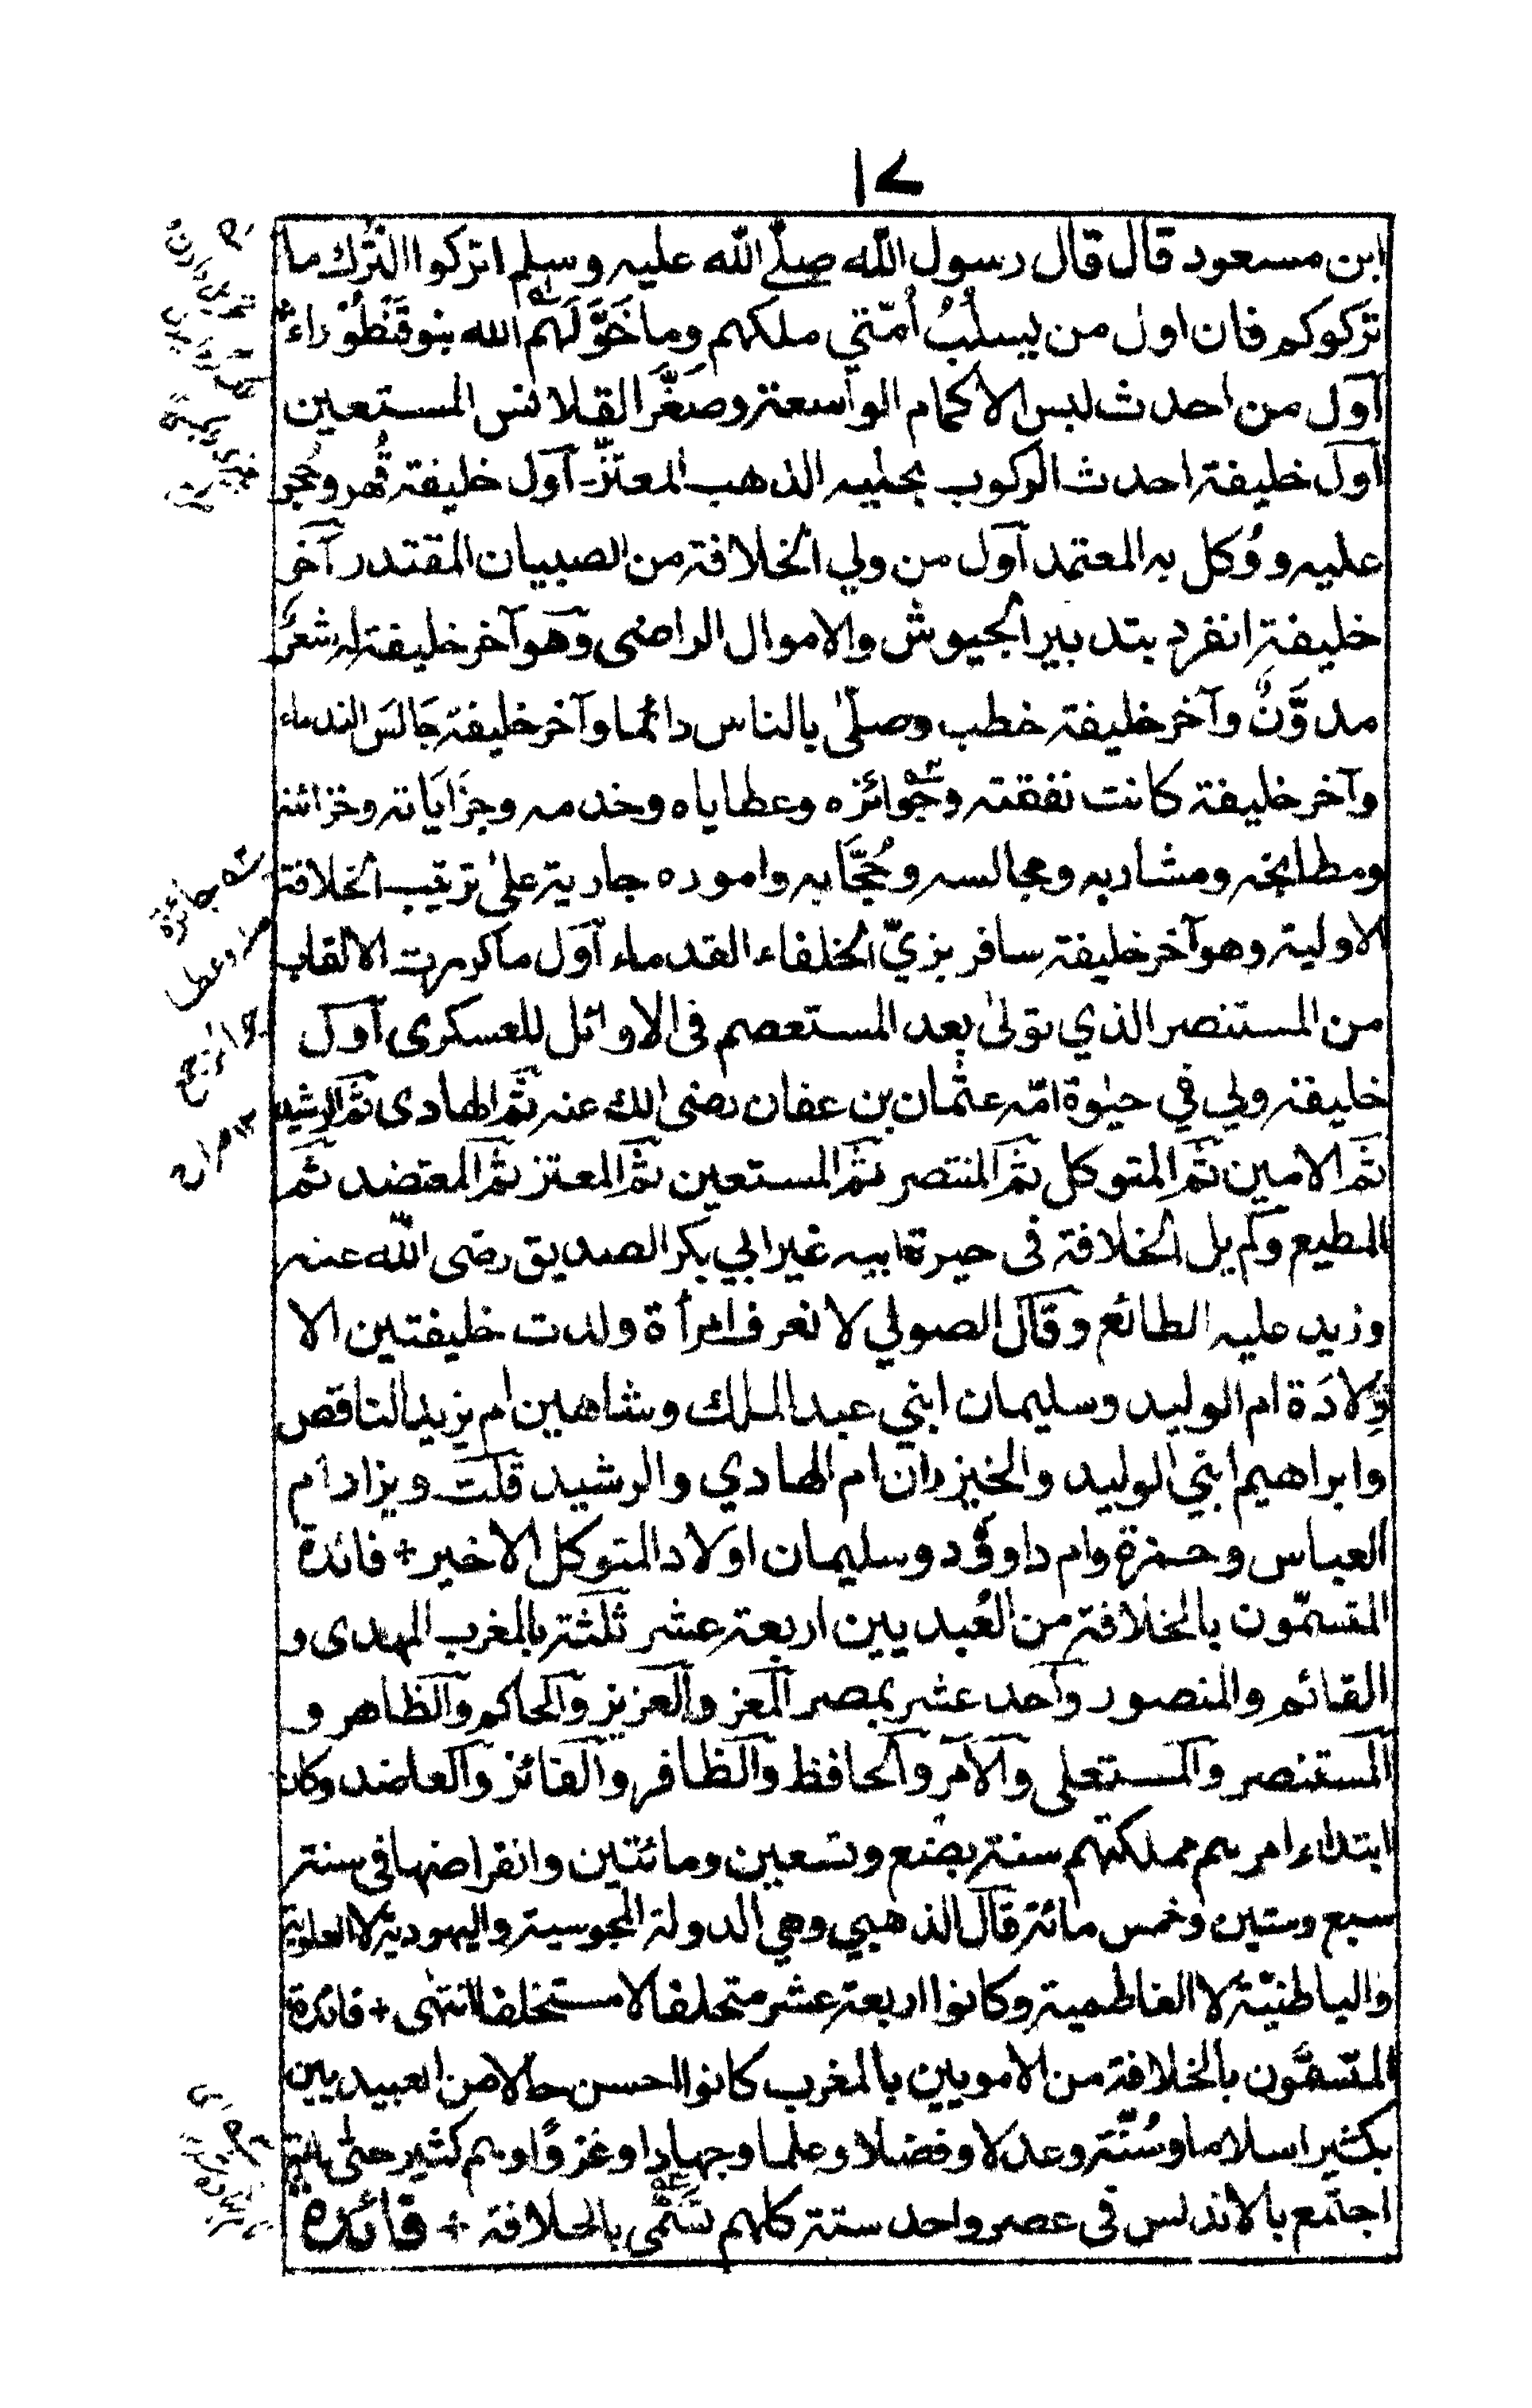 ١٧
ابن مسعود قال قال رسول الله صلى الله عليه وسلم اتركوا الترك ما
تركوكم فان اول من يسلُبُ اُمّتي ملكهم وما خَوَّلَهُم الله بنو قَنْطُوْراء
آول من احدث لبس الاكمام الواسعة وصَغَّر القلانس المستعين
آول خليفة احدث الركوب بحليه الذهب المعتزّ آول خليفة قُهر وحُجر
عليه ووُكل به المعتمد آول من ولي الخلافة من الصبيان المقتدر آخر
خليفة انفرد بتدبير الجيوش والاموال الراضى وهو آخر خليفة له شعرٌ
مدوَّنٌ وآخر خليفة خطب وصلّى بالناس دائما وآخر خليفة جَالَسَ الندماء
وآخر خليفة كانت نفقته وجوائزه وعطاياه وخدمه وجَرَايَاته وخزائنه
ومطابخه ومشاربه ومجالسه وحُجّابه واموره جارية على ترتيب الخلافة
الاولية وهو آخر خليفة سافر بزيّ الخلفاء القدماء آول ما كررت الالقاب
من المستنصر الذي تولى بعد المستعصم فى الاوائل للعسكرى آول
خليفة ولي في حيٰوة امّه عثمان بن عفان رضى الله عنه ثمّ الهادى ثمّ الرشيد
ثمّ الامين ثمّ المتوكل ثمّ المنتصر ثمّ المستعين ثمّ المعتز ثمّ المعتضد ثمّ
المطيع ولم يل الخلافة فى حيوة ابيه غير ابي بكر الصديق رضى الله عنه
وزيد عليه الطائع وقال الصولي لا نعرف امرأة ولدت خليفتين الا
وِلادَة ام الوليد وسليمان ابني عبد الملك وشاهين ام يزيد الناقص
وابراهيم ابني الوليد والخيزران ام الهادي والرشيد قلت ويزاد ام
العباس وحمزة وام داوٗد وسليمان اولاد المتوكل الاخير + فائدة
المتسمّون بالخلافة من العُبيديين اربعة عشر ثلثة بالمغرب المهدى و
القائم والمنصور وآحد عشر بمصر المعز والعزيز والحاكم والظاهر و
المستنصر والمستعلى والآمر والحافظ والظافر والفائز والعاضد وكان
ابتداء امرهم مملكتهم سنة بضع وتسعين ومائتين وانقراضها فى سنة
سبع وستين وخمس مائة قال الذهبي وهي الدولة المجوسية واليهودية لا العلوية
والباطنيّة لا الفاطمية وكانوا اربعة عشر متخلفا لا مستخلفا انتهى + فائدة
المتسمَّون بالخلافة من الامويين بالمغرب كانوا احسن حالا من العبيديين
بكثير اسلاما وسُنّة وعدلا وفضلا وعلما وجهادا وغزوًا وهم كثير حتى
اجتمع بالاندلس فى عصر واحد ستة كلهم تَسَمّى بالخلافة + فائدة
جائزة